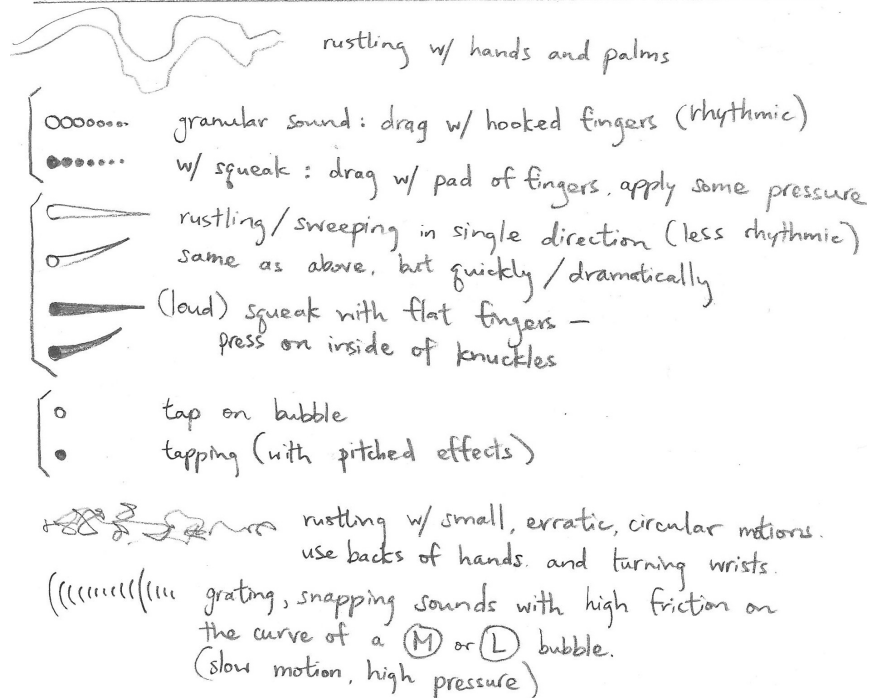 rustling w/ hands and palms
granular sound: drag w/ hooked fingers (rhythmic)
w/ squeak: drag w/ pad of fingers, apply some pressure
rustling/sweeping in single direction (less rhythmic)
same as above, but quickly/dramatically
(loud) squeak with flat fingers –
press on inside of knuckles
tap on bubble
tapping (with pitched effects)
rustling w/ small, erratic, circular motions.
use backs of hands. and turning wrists.
grating, snapping sounds with high friction on
the curve of a M or L bubble.
(slow motion, high pressure)